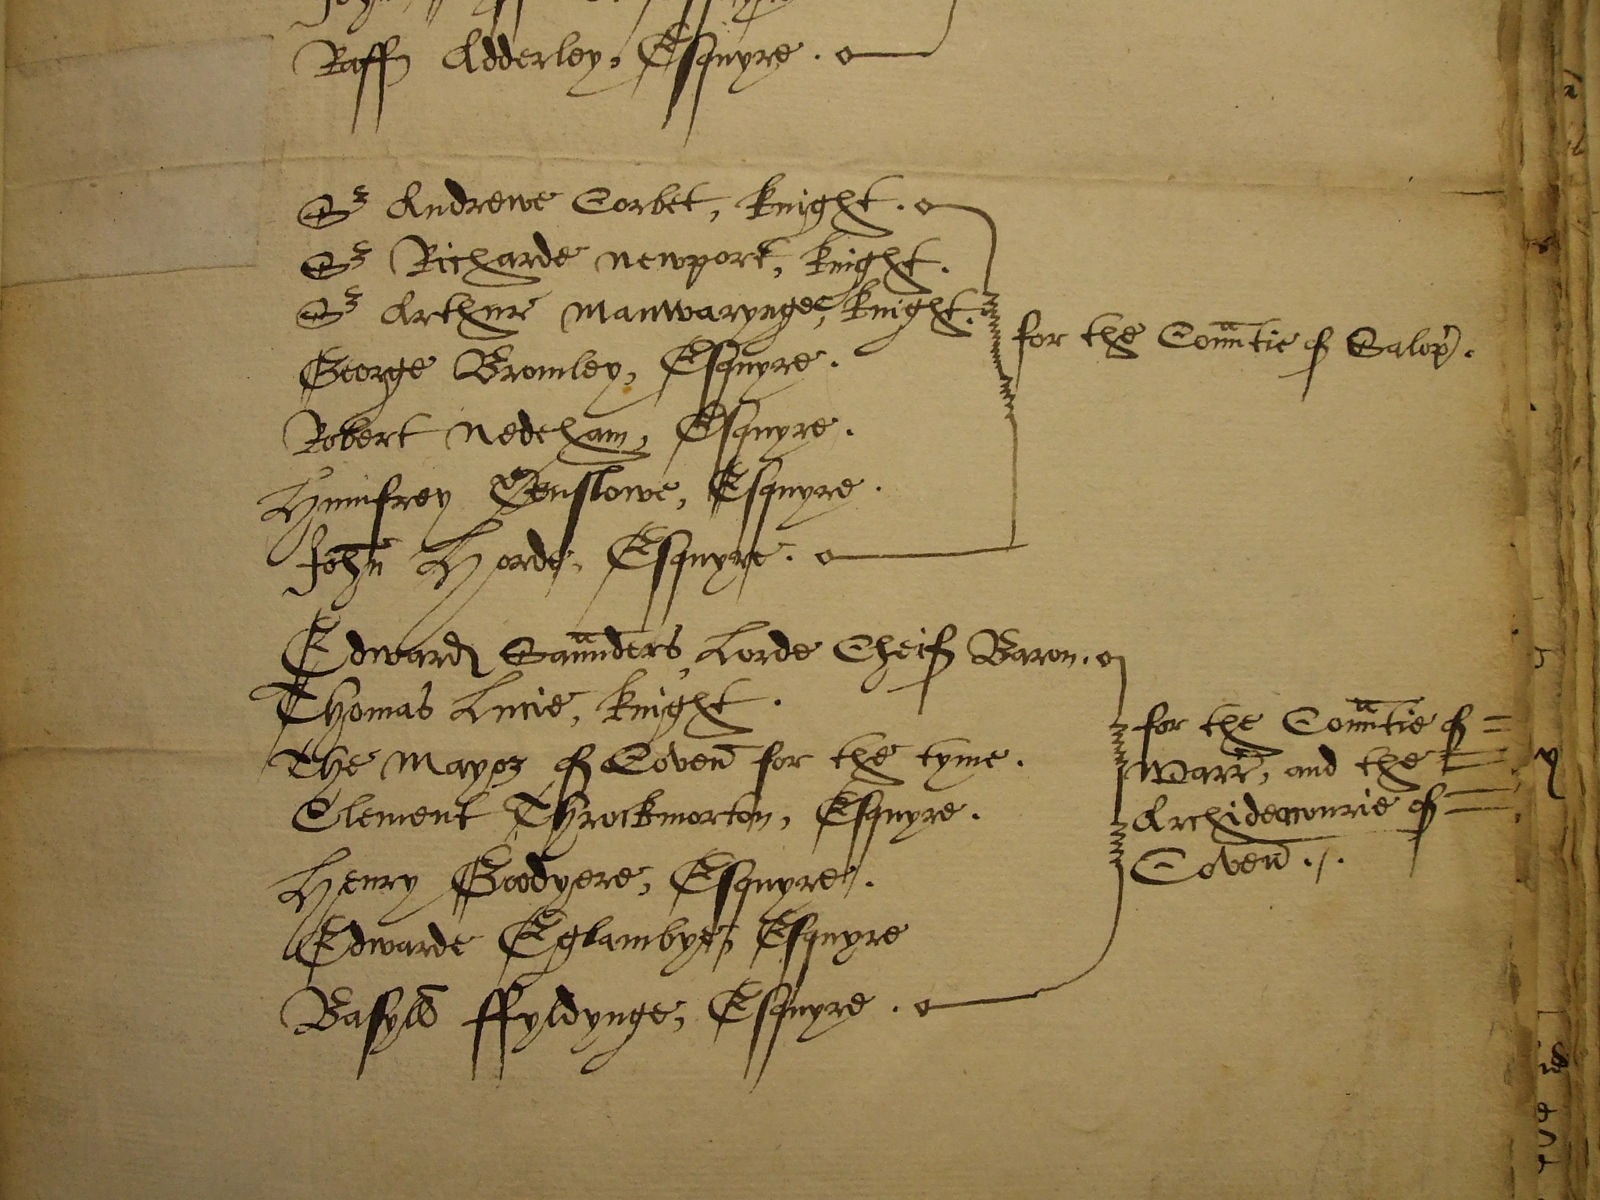 Raffe Adderley, Esquyre.
Sr Andrewe Corbet, knight.
Sr Richarde Newport, knight.
Sr Arthur Manwarynge, knight.
for the Countie of Salop.
George Bromley, Esquyre.
Robert Nedeham, Esquyre.
Humfrey Onslowe, Esquyre.
John Horde, Esquyre.
Edward Saunders, Lorde Cheif Baron.
Thomas Lucie, knight.
for the Countie of =
The Mayor of Coven for the tyme.
Warr, and the =
Clement Throckmorton, Esquyre.
Archideaconrie of =
Coven ./.
Henry Goodyere, Esquyre.
Edwarde Eglambye, Esquyre
Basyld ffyldynge, Esquyre.